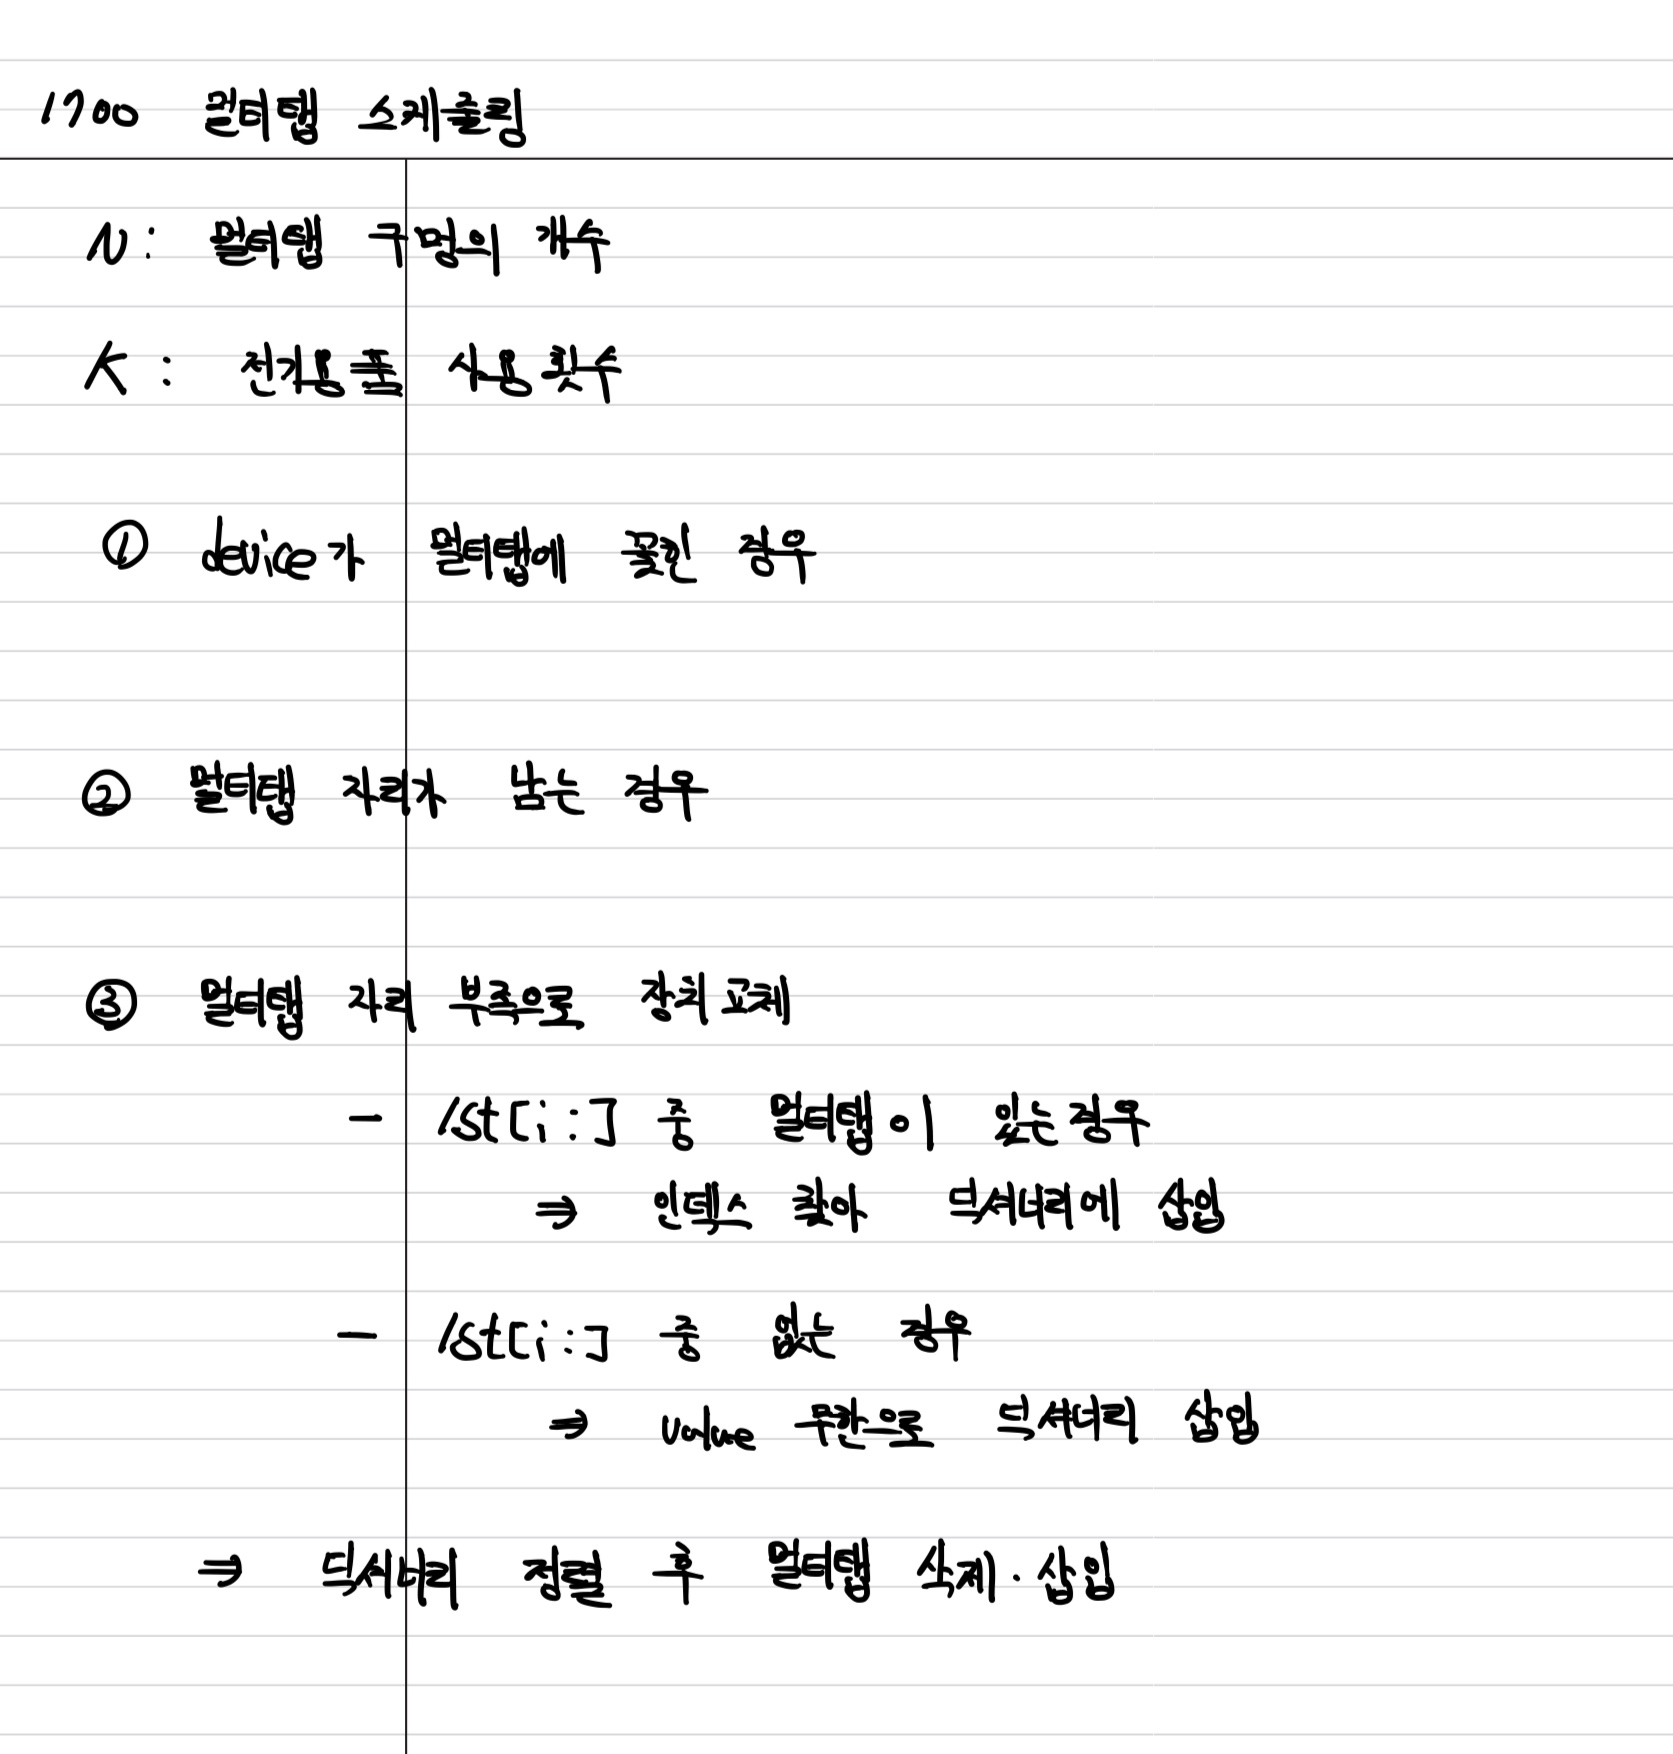 1700 멀티탭 스케줄링
N: 멀티탭 구멍의 개수
K: 전기용품 사용횟수
① device가 멀티탭에 꽂힌 경우
② 멀티탭 자리가 남는 경우
③ 멀티탭 자리 부족으로 장치교체
- lst[i:] 중 멀티탭이 있는경우
⇒ 인덱스 찾아 딕셔너리에 삽입
- lst[i:] 중 없는 경우
⇒ value 무한으로 딕셔너리 삽입
⇒ 딕셔너리 정렬 후 멀티탭 삭제·삽입